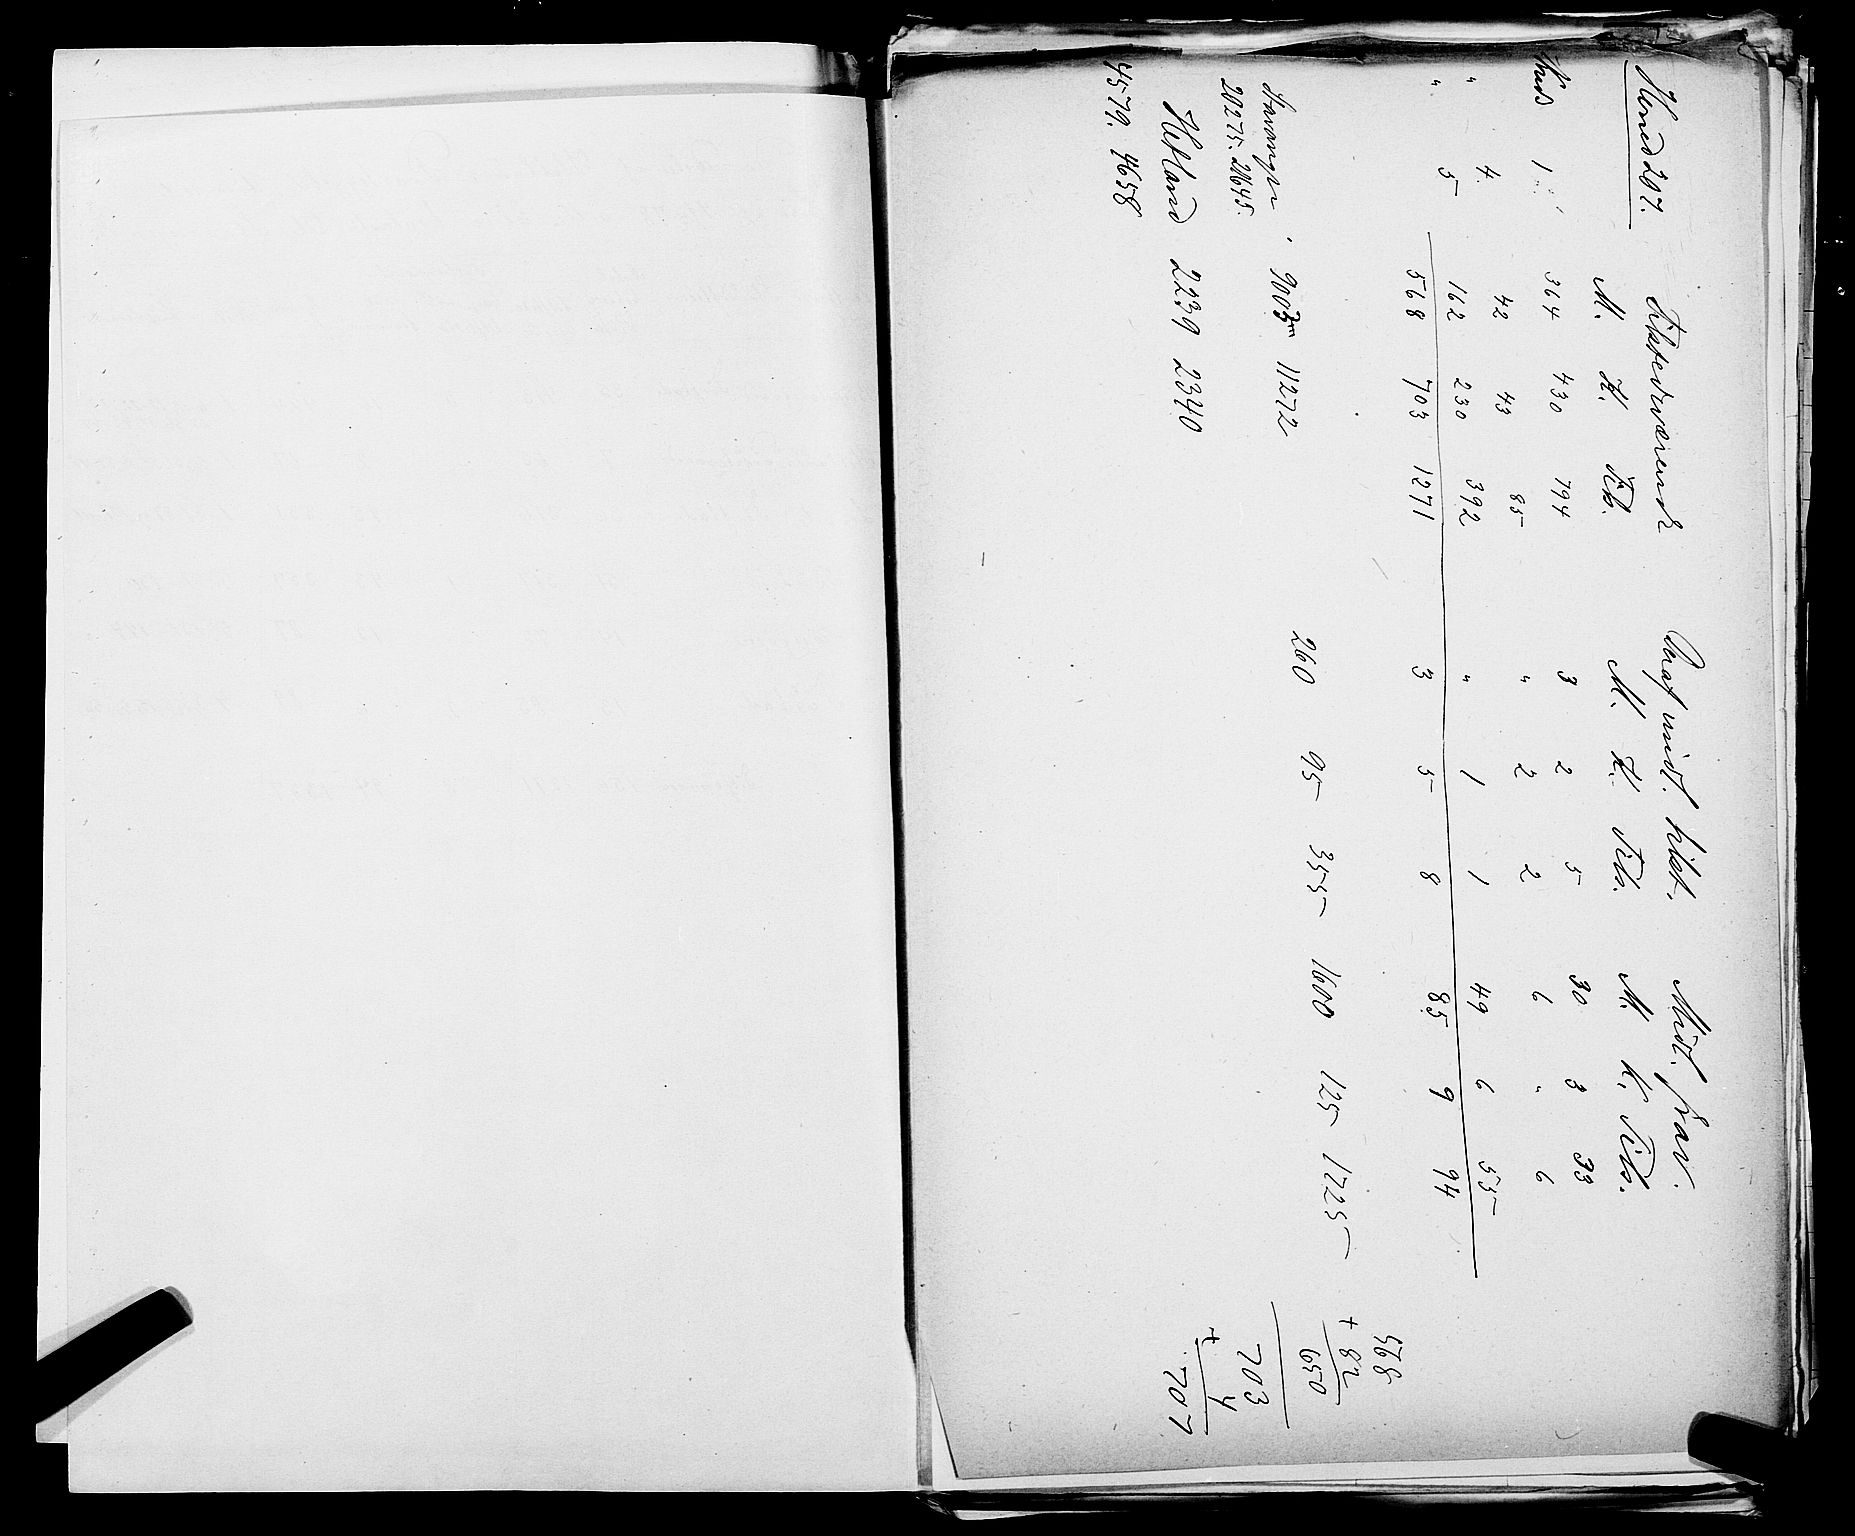 Tilstedværende Deraf midl. tilst. Midl. frav.
M. K. Tils. M. K. Tils. M. K. Tils.
1 364 430 794 3 2 5 30 3 33
" 4 42 43 85 " 2 2 6 " 6
" 5 162 230 392 " 1 1 49 6 55
568 703 1271 3 5 8 85 9 94
568
+ 82
650
9003 11272 260 95 355 1600 125 1725
20275. 21645.
703
+ 4
707
Hetland 2239 2340
4579. 4658